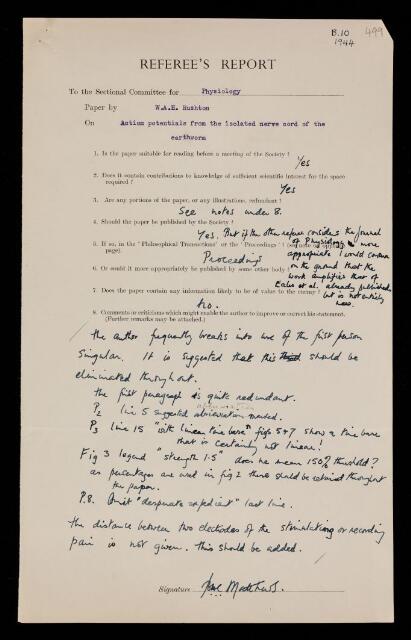 B.10
1944
499
REFEREE'S REPORT
To the Sectional Committee for Physiology
Paper by W.A.H. Rushton
On Action potentials from the isolated nerve cord of the
earthworm
1. Is the paper suitable for reading before a meeting of the Society ?
Yes
2. Does it contain contributions to knowledge of sufficient scientific interest for the space
required ?
Yes
3. Are any portions of the paper, or any illustrations, redundant ?
See notes under 8.
4. Should the paper be published by the Society ?
Yes. But if the other referee considers the Journal
of Physiology more
appropriate I would concur
on the ground that the
work amplifies that of
Eccles et al. already published
but is not entirely
new.
5. If so, in the 'Philosophical Transactions' or the 'Proceedings' ?
page).
Proceedings
6. Or could it more appropriately be published by some other body
7. Does the paper contain any information likely to be of value to the enemy ?
No.
8. Comments or criticisms which might enable the author to improve or correct his statement.
(Further remarks may be attached.)
The author frequently breaks into use of the first person
singular. It is suggested that this should be
eliminated throughout.
The first paragraph is quite redundant.
P2 line 5 suggested abbreviation
P3 line 15 "with linear time base" figs 5+7 show a time base
that is certainly not linear!
Fig 3 legend "strength 1·5" does he mean 150% threshold?
as percentages are used in fig 2 these should be retained throughout
the paper.
P.8. Omit "desperate expedient" last line.
The distance between two electrodes of the stimulating or recording
pair is not given. This should be added.
Signature Matthews.